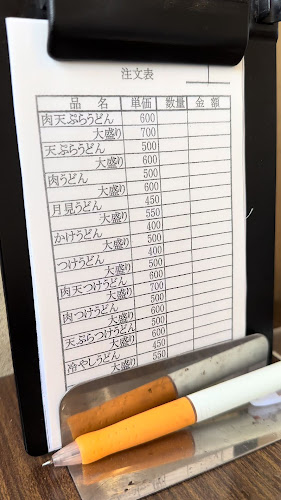 注文表
品 名 単価 数量 金 額
肉天ぷらうどん 600
大盛り 700
天ぷらうどん 500
大盛り 600
肉うどん 500
大盛り 600
月見うどん 450
大盛り 550
かけうどん 400
大盛り 500
つけうどん 500
大盛り 600
肉天つけうどん 600
大盛り 700
肉つけうどん 500
大盛り 600
天ぷらつけうどん 500
大盛り 600
冷やしうどん 450
大盛り 550